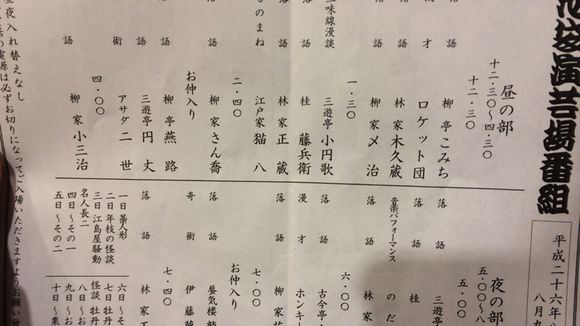 池袋演芸場番組
平成二十六年八
八月九
昼の部
十二・三〇〜四・三〇
十二・三〇
語 柳亭こみち
才 ロケット団
語 林家木久蔵
落語 柳家〆治
一・三〇
三味線漫談 三遊亭小円歌
落語 桂藤兵衛
落語 林家正蔵
ものまね 江戸家猫八
二・四〇
お仲入り
落語 柳家さん喬
落語 柳亭燕路
落語 三遊亭円丈
術 アサダ二世
四・〇〇
落語 柳家小三治
夜の部
五・〇〇〜八
五・〇〇
落語 三遊
落語 桂
音楽パフォーマンス のだ
落語 林家
六・〇〇
落語 古今亭
漫才 ホンキー
落語 林家
七・〇〇
お仲入り
落語 蜃気楼龍
奇術 伊藤
七・四〇
落語 林家
一日 藁人形
二日 年枝の怪談
三日 江島屋騒動
名人長二
四日〜その一
五日〜その二
六日〜そ
怪談 牡丹
七日〜お
八日〜お
九日〜お
十日〜乗
昼夜入れ替えなし
電源は必ずお切りになってご入場いただきますようお願い